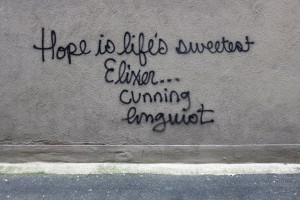 Hope is life's sweetest
Elixer...
cunning
linguist